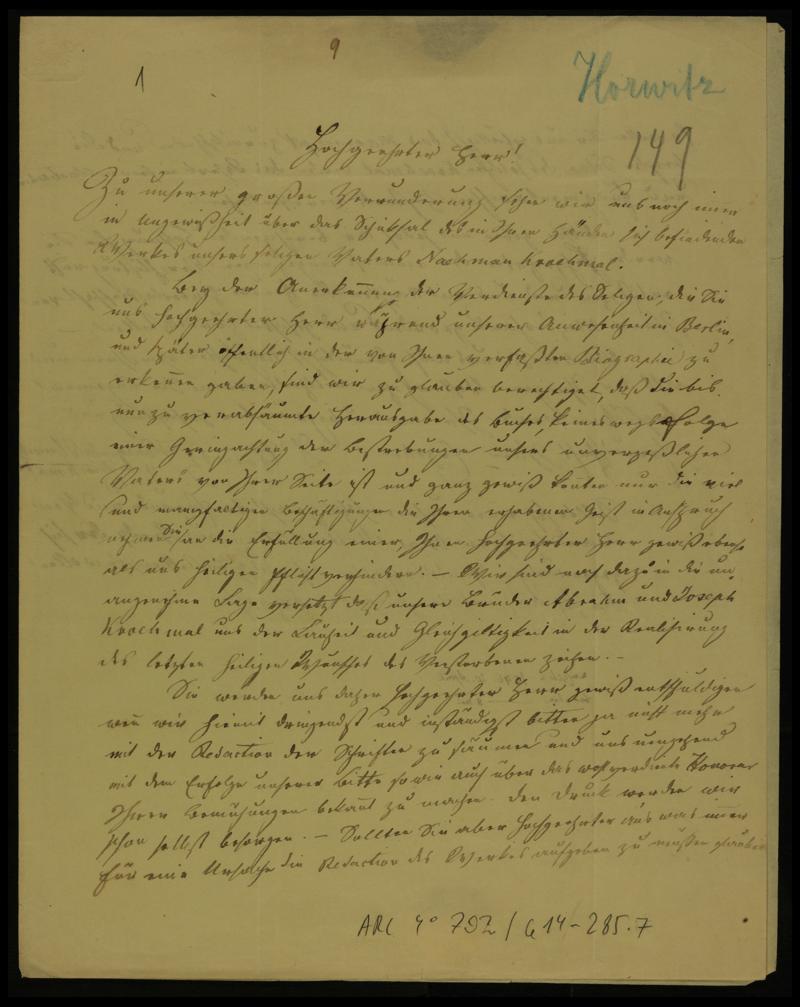 9
1
Horwitz
149
Hochgeehrter Herr!
Zu unserer großen Verwunderung sehen wir uns noch immer
in Ungewißheit über das Schiksal des in Ihren Händen sich befindenden
Werkes unsers seligen Vaters Nachman Krochmal.
Bey der Anerkennung der Verdienste des Seligen, die Sie
uns hochgeehrter Herr während unserer Anwesenheit in Berlin,
und später öffentlich in der von Ihnen verfaßten Biographie zu
erkennen gaben, sind wir zu glauben berechtiget, daß die bis
nunzu verabsäumte Herausgabe des Buches, keineswegs Folge
einer Geringachtung der Bestrebungen unsers unvergeßlichen
Vaters von Ihrer Seite ist und ganz gewiß konten nur die viel
und mangfaltigen Beschäftigungen die Ihren erhabenen Geist in Anspruch
nehmen Sie an der Erfüllung einer, Ihnen hochgeehrter Herr gewiß ebenso
als uns heiligen Pflicht verhindern. — Wir sind noch dazu in die un
angenehme Lage versetzt daß unsere Brüder Abraham und Joseph
Krochmal uns der Lauheit und Gleichgiltigkeit in der Realisirung
des letzten heiligen Wunsches des Verstorbenen zeihen. —
Sie werden uns daher hochgeehrter Herr gewiß entschuldigen
wen wir hiemit dringendst und inständigst bitten ja nicht mehr
mit der Redaction der Schriften zu säumen und uns umgehend
mit dem Erfolge unserer Bitte so wie auch über das wohlverdiente Honorar
Ihrer Bemühungen bekant zu machen. Den Druck werden wir
schon selbst besorgen. — Sollten Sie aber hochgeehrter aus was immer
für eine Ursache die Redaction des Werkes aufgeben zu müssen glauben
ARC 4° 792 / G 14-285.7